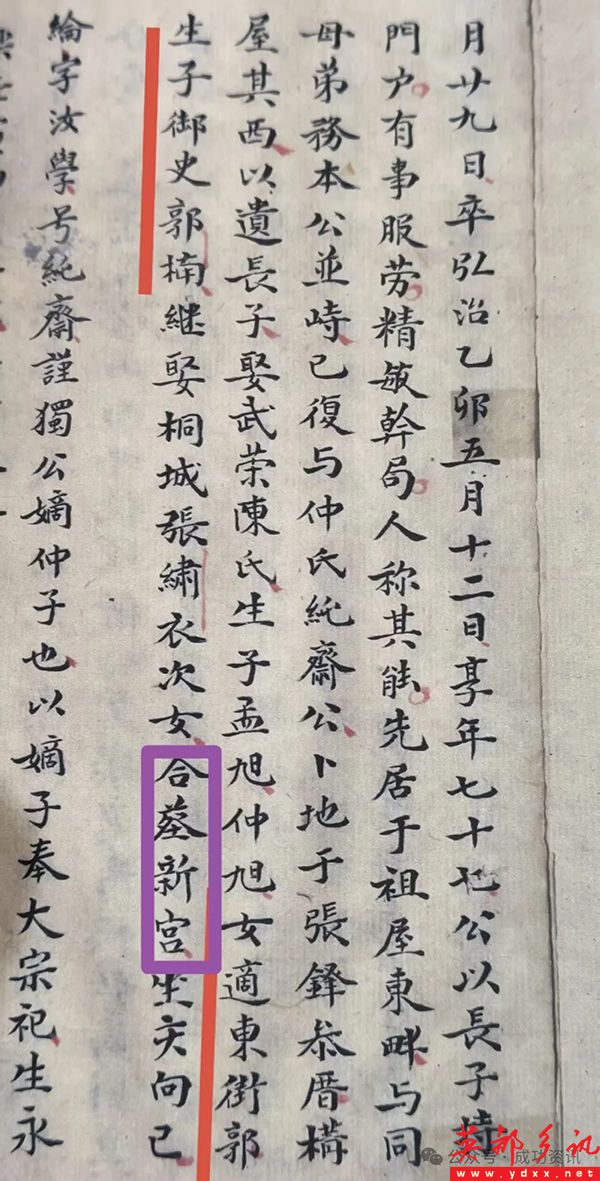 月廿九日卒弘治乙卯五月十二日享年七十七公以長子持
門户有事服劳精敏幹局人称其能先居于祖屋東畔与同
母弟務本公並峙已復与仲氏純齋公卜地于張鋒恭厝構
屋其西以遺長子娶武荣陳氏生子孟旭仲旭女適東街郭
生子御史郭楠継娶桐城張繡衣次女合塟新宫坐亥向巳
綸字汝學号純齋謹獨公嫡仲子也以嫡子奉大宗祀生永
公众号·成功资讯
英都乡讯
www.ydxx.net